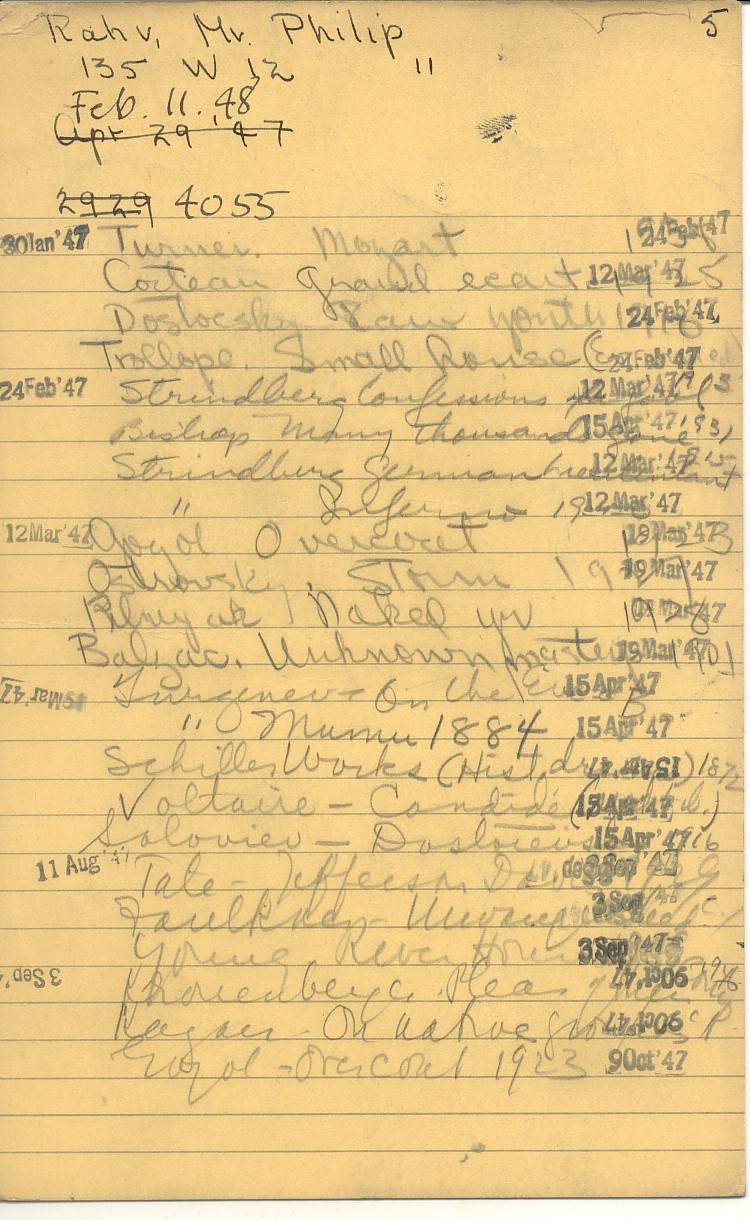 5
Rahv, Mr. Philip
135 W 12 "
Feb. 11. 48
Apr 29 '47
2929 4055
30Jan'47 Turner. Mozart 24Feb'47
Cocteau Grand ecart. 12Mar'47 1925
Dostoevsky Raw youth 24Feb'47
Trollope. Small house 24Feb'47
24Feb'47 Strindberg Confessions 12Mar'47
Bishop Many thousand gone 15Apr'47 1931
Strindberg German 12Mar'47
" Inferno 12Mar'47
12Mar'47 Gogol Overcoat 19Mar'47
Ostrovsky. Storm 19Mar'47
Pilnyak Naked yr 19Mar'47
Balzac. Unknown master 19Mar'47 1901
19Mar'47 Turgenev - On the Eve 15Apr'47
" Mumu 1884 15Apr'47
Schiller Works (Hist. dr. 15Apr'47) 1872
Voltaire - Candide 15Apr'47
Soloviev - Dostoievs 15Apr'47 1916
11 Aug '47 Tate - Jefferson Davis 3Sep'47
Faulkner - Unvanquished 3Sep'47
Young River House 3Sep'47
3 Sep '47 9Oct'47
Kazin - On native grounds 9Oct'47
Gogol - Overcoat 1923 9Oct'47